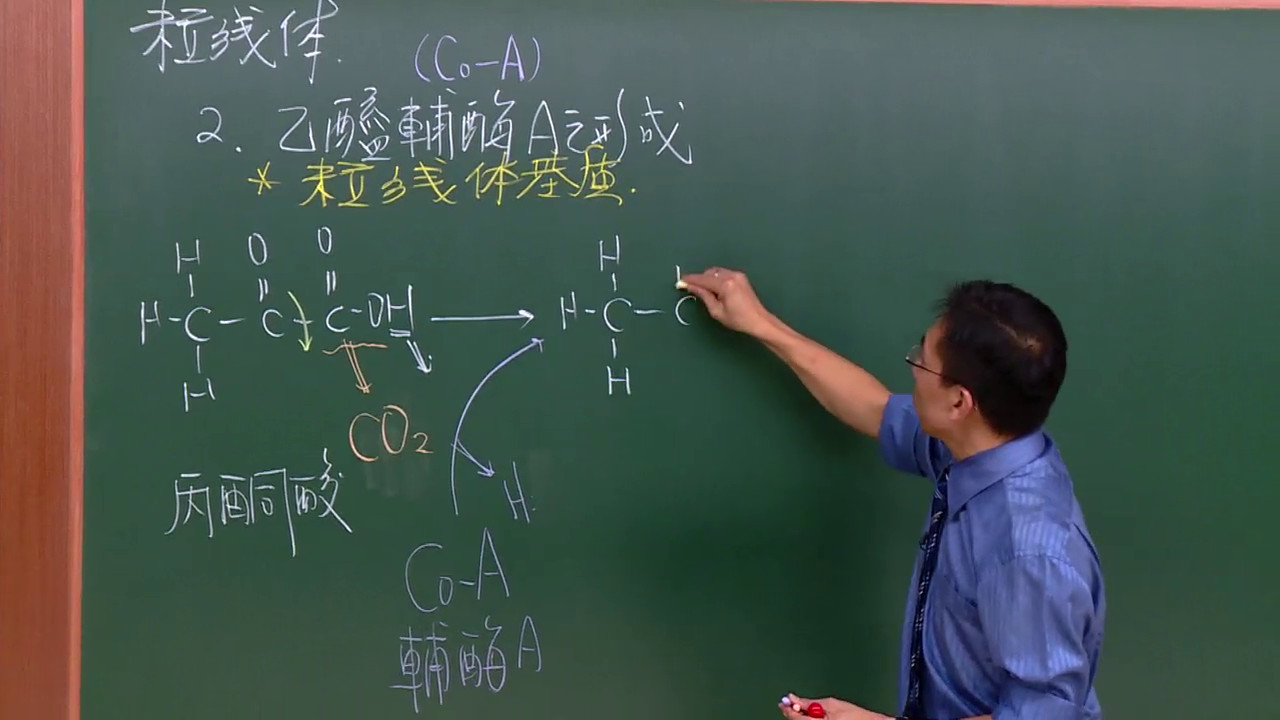 粒线体.
(Co-A)
2. 乙醯輔酶A之形成
* 粒线体基质.
H O O H
H-C-C-C-OH → H-C-C
H H
CO₂
丙酮酸
H:
Co-A
輔酶A